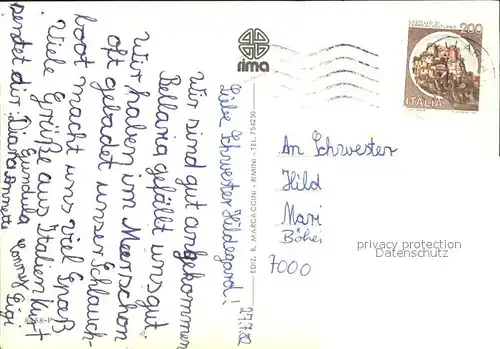 Liebe Schwester Hildegard! 27.7.82
Wir sind gut angekommen
Bellaria gefällt uns gut
Wir haben im Meer schon
oft gebadet unser Schlauch-
boot macht uns viel Spaß
Viele Grüße aus Italien
sendet dir Diara Annette
Gundula Gigi
8358-P
rima
EDIZ. B. MARCACCINI - RIMINI - TEL. 754250
CASTELLO DI
200
ITALIA
An Schwester
Hild
Mari
Böhei
7000
privacy protection
Datenschutz